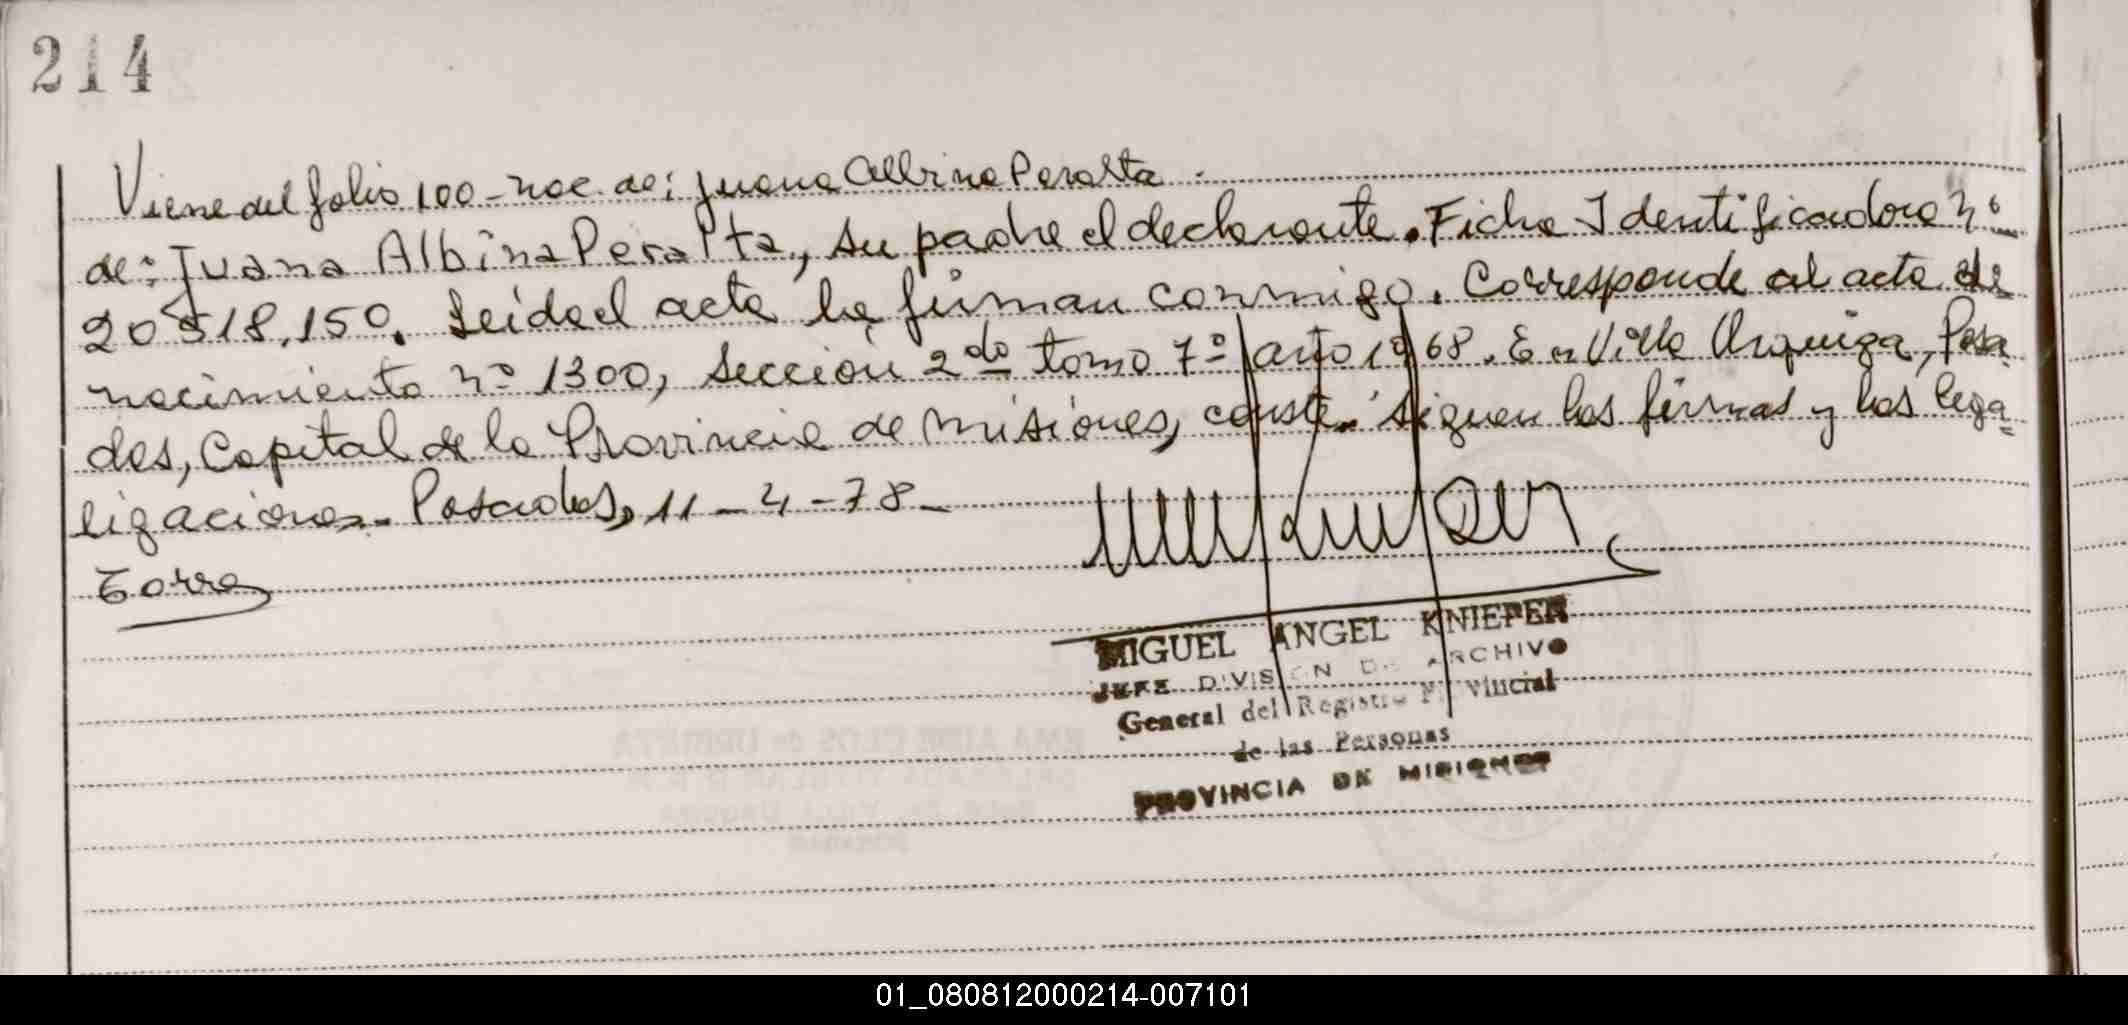 214
Viene del folio 100 - nac. de: Juana Albina Peralta.
de: Juana Albina Peralta, su padre el declarante. Ficha Identificadora nº
20518.150. Leída el acta la firman conmigo. Corresponde al acta de
nacimiento nº 1300, sección 2do tomo 7º año 1968. En Villa Urquiza, Posa
das, Capital de la Provincia de Misiones, conste. Siguen las firmas y las lega=
lizaciones. Posadas, 11-4-78-
MIGUEL ANGEL KNIEPER
JEFE DIVISION DE ARCHIVO
General del Registro Provincial
de las Personas
PROVINCIA DE MISIONES
01_080812000214-007101